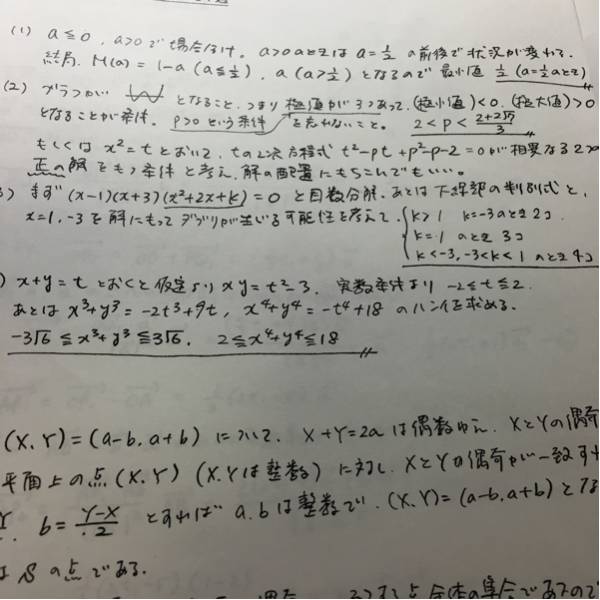 (1) a≦0, a>0で場合分け. a>0のときは a=1/2 の前後で状況が変わる.
結局, M(a)=1-a (a≦1/2), a (a>1/2) となるので 最小値 1/2 (a=1/2のとき)
(2) グラフが となること, つまり 極値が3つあって, (極小値)<0, (極大値)>0
となることが条件. p>0という条件を忘れないこと. 2<p<(2+2√7)/3
もしくは x²=t とおいて, tの2次方程式 t²-pt+p²-p-2=0 が相異なる2つ
正の解をもつ条件と考え, 解の配置にもちこんでもいい.
) まず (x-1)(x+3)(x²+2x+k)=0 と因数分解. あとは下線部の判別式と,
x=1,-3を解にもってダブりが生じる可能性を考えて, k>1 k=-3のとき2コ.
k=1 のとき 3コ
k<-3, -3<k<1 のとき4コ
) x+y=t とおくと仮定より xy=t²-3. 実数条件より -2≦t≦2.
あとは x³+y³=-2t³+9t, x⁴+y⁴=-t⁴+18 のハンイを求める.
-3√6≦x³+y³≦3√6, 2≦x⁴+y⁴≦18
(X,Y)=(a-b, a+b) について, X+Y=2a は偶数ゆえ, XとYの偶奇
平面上の点(X,Y) (X,Yは整数) に対し, XとYの偶奇が一致す
b=(Y-X)/2 とすれば a,bは整数で, (X,Y)=(a-b, a+b) とな
は S の点である.